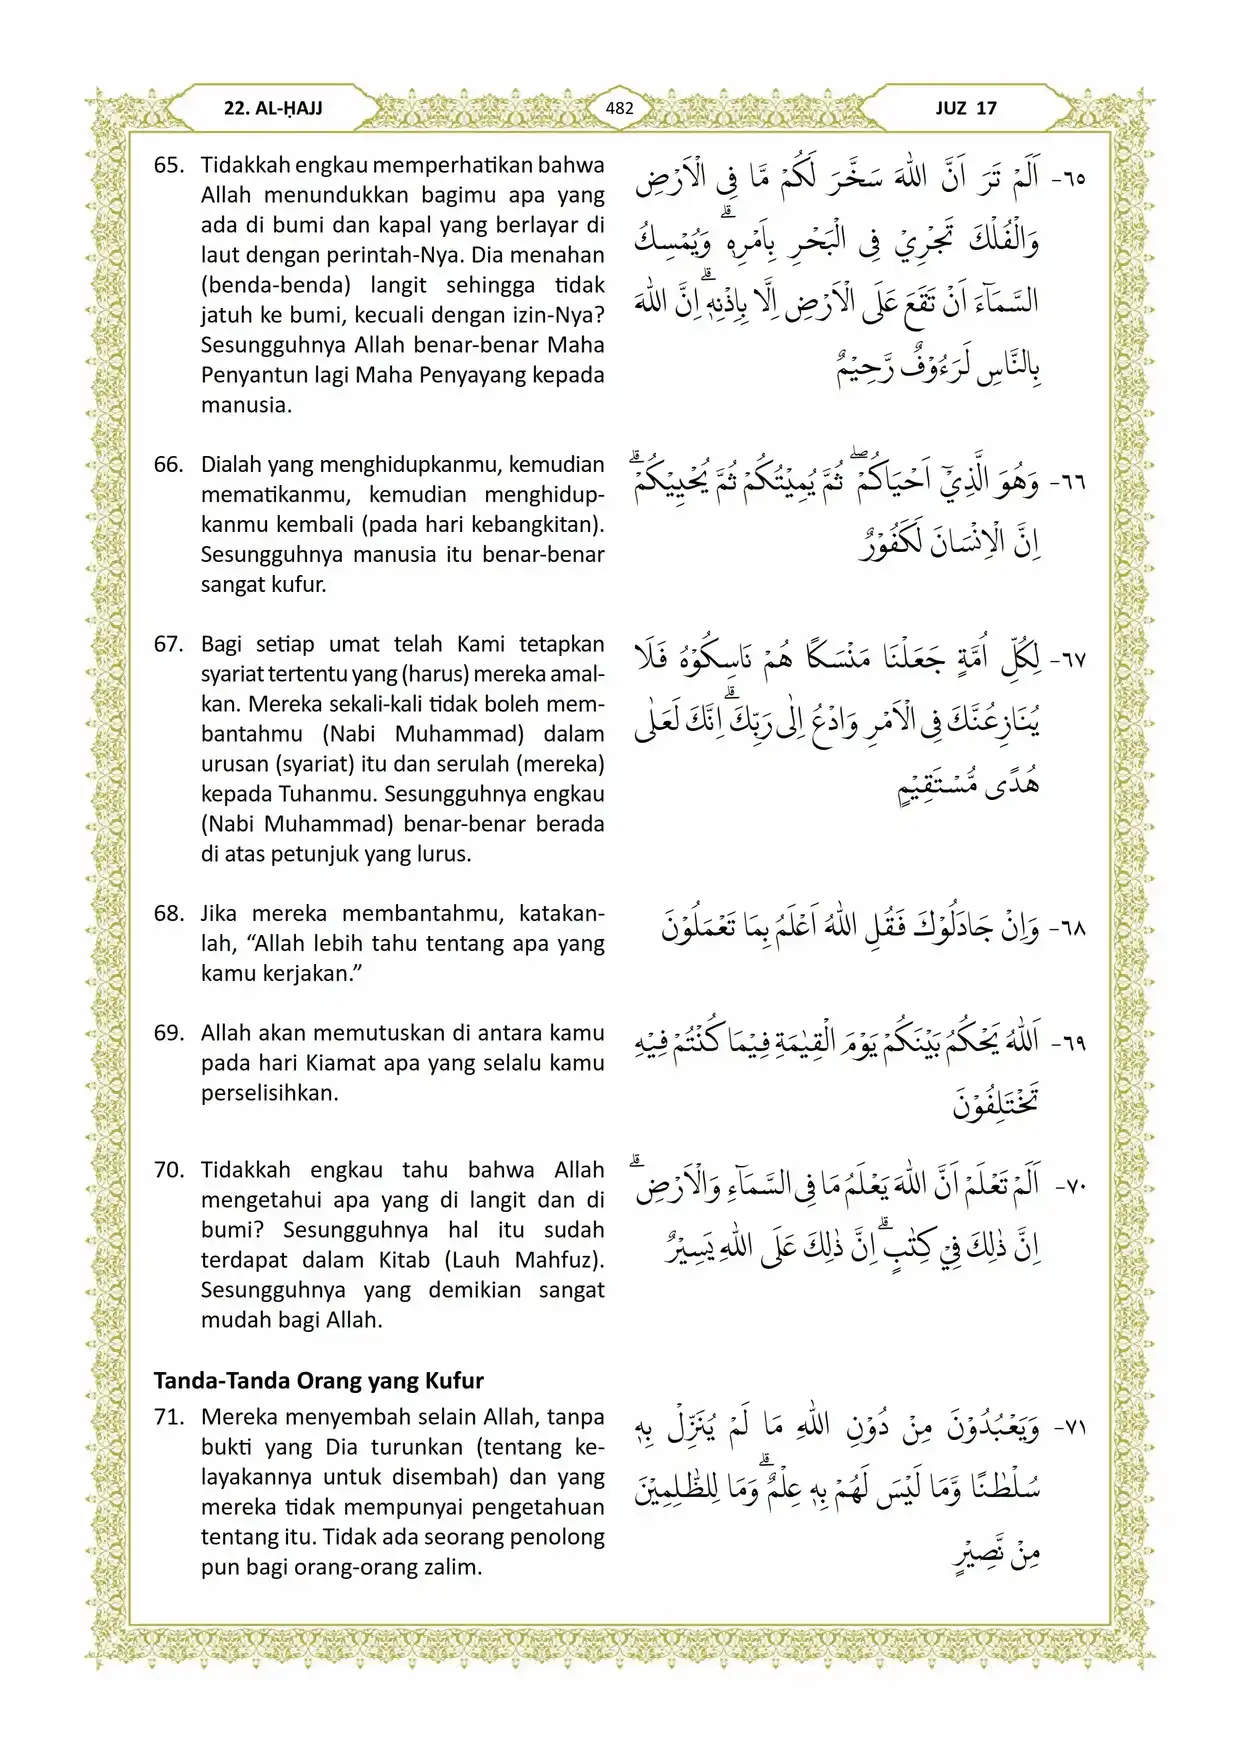 22. AL-ḤAJJ
482
JUZ 17
65. Tidakkah engkau memperhatikan bahwa
Allah menundukkan bagimu apa yang
ada di bumi dan kapal yang berlayar di
laut dengan perintah-Nya. Dia menahan
(benda-benda) langit sehingga tidak
jatuh ke bumi, kecuali dengan izin-Nya?
Sesungguhnya Allah benar-benar Maha
Penyantun lagi Maha Penyayang kepada
manusia.
٦٥- اَلَمْ تَرَ اَنَّ اللّٰهَ سَخَّرَ لَكُمْ مَّا فِى الْاَرْضِ
وَالْفُلْكَ تَجْرِيْ فِى الْبَحْرِ بِاَمْرِهٖۗ وَيُمْسِكُ
السَّمَاۤءَ اَنْ تَقَعَ عَلَى الْاَرْضِ اِلَّا بِاِذْنِهٖۗ اِنَّ اللّٰهَ
بِالنَّاسِ لَرَءُوْفٌ رَّحِيْمٌ
66. Dialah yang menghidupkanmu, kemudian
mematikanmu, kemudian menghidup-
kanmu kembali (pada hari kebangkitan).
Sesungguhnya manusia itu benar-benar
sangat kufur.
٦٦- وَهُوَ الَّذِيْٓ اَحْيَاكُمْۖ ثُمَّ يُمِيْتُكُمْ ثُمَّ يُحْيِيْكُمْۗ
اِنَّ الْاِنْسَانَ لَكَفُوْرٌ
67. Bagi setiap umat telah Kami tetapkan
syariat tertentu yang (harus) mereka amal-
kan. Mereka sekali-kali tidak boleh mem-
bantahmu (Nabi Muhammad) dalam
urusan (syariat) itu dan serulah (mereka)
kepada Tuhanmu. Sesungguhnya engkau
(Nabi Muhammad) benar-benar berada
di atas petunjuk yang lurus.
٦٧- لِكُلِّ اُمَّةٍ جَعَلْنَا مَنْسَكًا هُمْ نَاسِكُوْهُ فَلَا
يُنَازِعُنَّكَ فِى الْاَمْرِ وَادْعُ اِلٰى رَبِّكَۗ اِنَّكَ لَعَلٰى
هُدًى مُّسْتَقِيْمٍ
68. Jika mereka membantahmu, katakan-
lah, “Allah lebih tahu tentang apa yang
kamu kerjakan.”
٦٨- وَاِنْ جَادَلُوْكَ فَقُلِ اللّٰهُ اَعْلَمُ بِمَا تَعْمَلُوْنَ
69. Allah akan memutuskan di antara kamu
pada hari Kiamat apa yang selalu kamu
perselisihkan.
٦٩- اَللّٰهُ يَحْكُمُ بَيْنَكُمْ يَوْمَ الْقِيٰمَةِ فِيْمَا كُنْتُمْ فِيْهِ
تَخْتَلِفُوْنَ
70. Tidakkah engkau tahu bahwa Allah
mengetahui apa yang di langit dan di
bumi? Sesungguhnya hal itu sudah
terdapat dalam Kitab (Lauh Mahfuz).
Sesungguhnya yang demikian sangat
mudah bagi Allah.
٧٠- اَلَمْ تَعْلَمْ اَنَّ اللّٰهَ يَعْلَمُ مَا فِى السَّمَاۤءِ وَالْاَرْضِۗ
اِنَّ ذٰلِكَ فِيْ كِتٰبٍۗ اِنَّ ذٰلِكَ عَلَى اللّٰهِ يَسِيْرٌ
Tanda-Tanda Orang yang Kufur
71. Mereka menyembah selain Allah, tanpa
bukti yang Dia turunkan (tentang ke-
layakannya untuk disembah) dan yang
mereka tidak mempunyai pengetahuan
tentang itu. Tidak ada seorang penolong
pun bagi orang-orang zalim.
٧١- وَيَعْبُدُوْنَ مِنْ دُوْنِ اللّٰهِ مَا لَمْ يُنَزِّلْ بِهٖ
سُلْطٰنًا وَّمَا لَيْسَ لَهُمْ بِهٖ عِلْمٌۗ وَمَا لِلظّٰلِمِيْنَ
مِنْ نَّصِيْرٍ